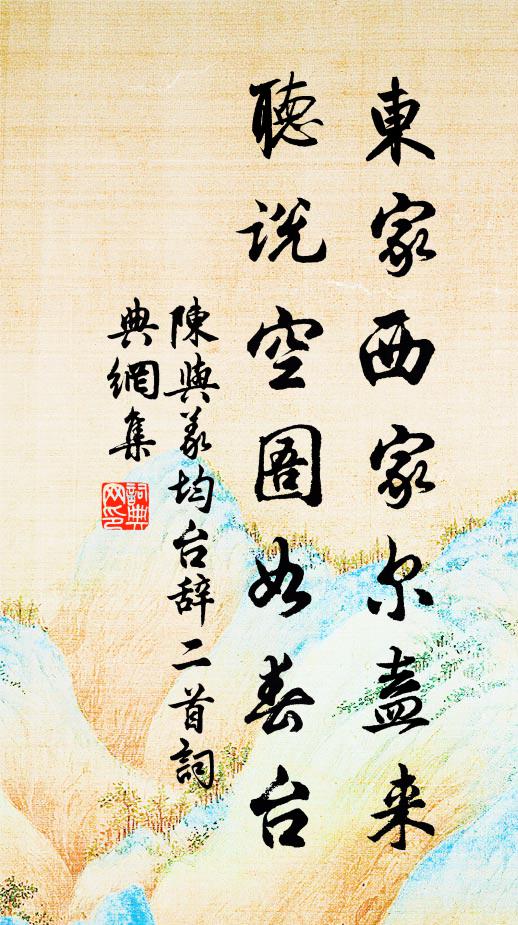 東家西家尔盍来
聽説空圄如春台
陳與義均台辞二首詞
典網集
詞典
网印